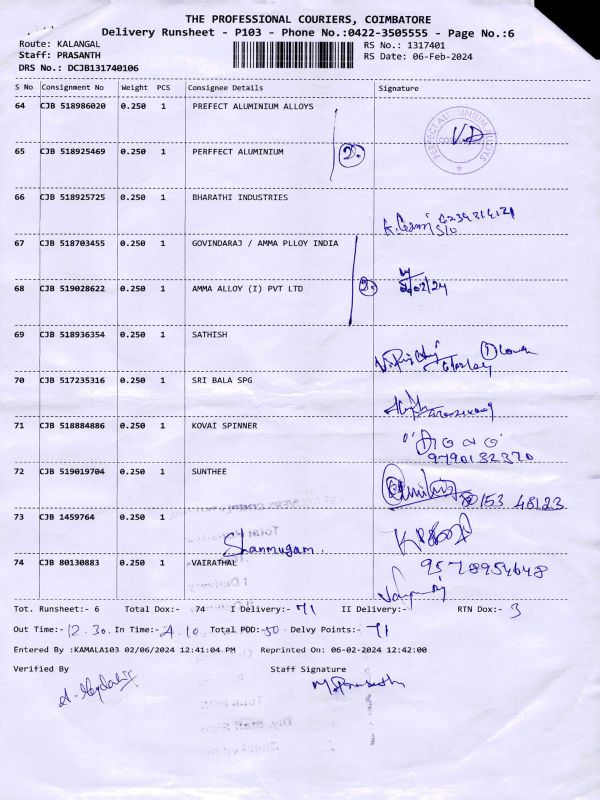 THE PROFESSIONAL COURIERS, COIMBATORE
Delivery Runsheet - P103 - Phone No.:0422-3505555 - Page No.:6
Route: KALANGAL RS No.: 1317401
Staff: PRASANTH RS Date: 06-Feb-2024
DRS No.: DCJB131740106
S No Consignment No Weight PCS Consignee Details Signature
64 CJB 518986020 0.250 1 PREFECT ALUMINIUM ALLOYS
65 CJB 518925469 0.250 1 PERFFECT ALUMINIUM 2.
66 CJB 518925725 0.250 1 BHARATHI INDUSTRIES
67 CJB 518703455 0.250 1 GOVINDARAJ / AMMA PLLOY INDIA
68 CJB 519028622 0.250 1 AMMA ALLOY (I) PVT LTD 2.
69 CJB 518936354 0.250 1 SATHISH
70 CJB 517235316 0.250 1 SRI BALA SPG
71 CJB 518884886 0.250 1 KOVAI SPINNER
9790132370
72 CJB 519019704 0.250 1 SUNTHEE
48123
73 CJB 1459764 0.250 1
Shanmugam..
74 CJB 80130883 0.250 1 VAIRATHAL 9578954648
Tot. Runsheet:- 6 Total Dox:- 74 I Delivery:- 71 II Delivery:- RTN Dox:- 3
Out Time:- 12.30. In Time:- 4.10 Total POD:- 50 Delvy Points:- 71
Entered By :KAMALA103 02/06/2024 12:41:04 PM Reprinted On: 06-02-2024 12:42:00
Verified By Staff Signature